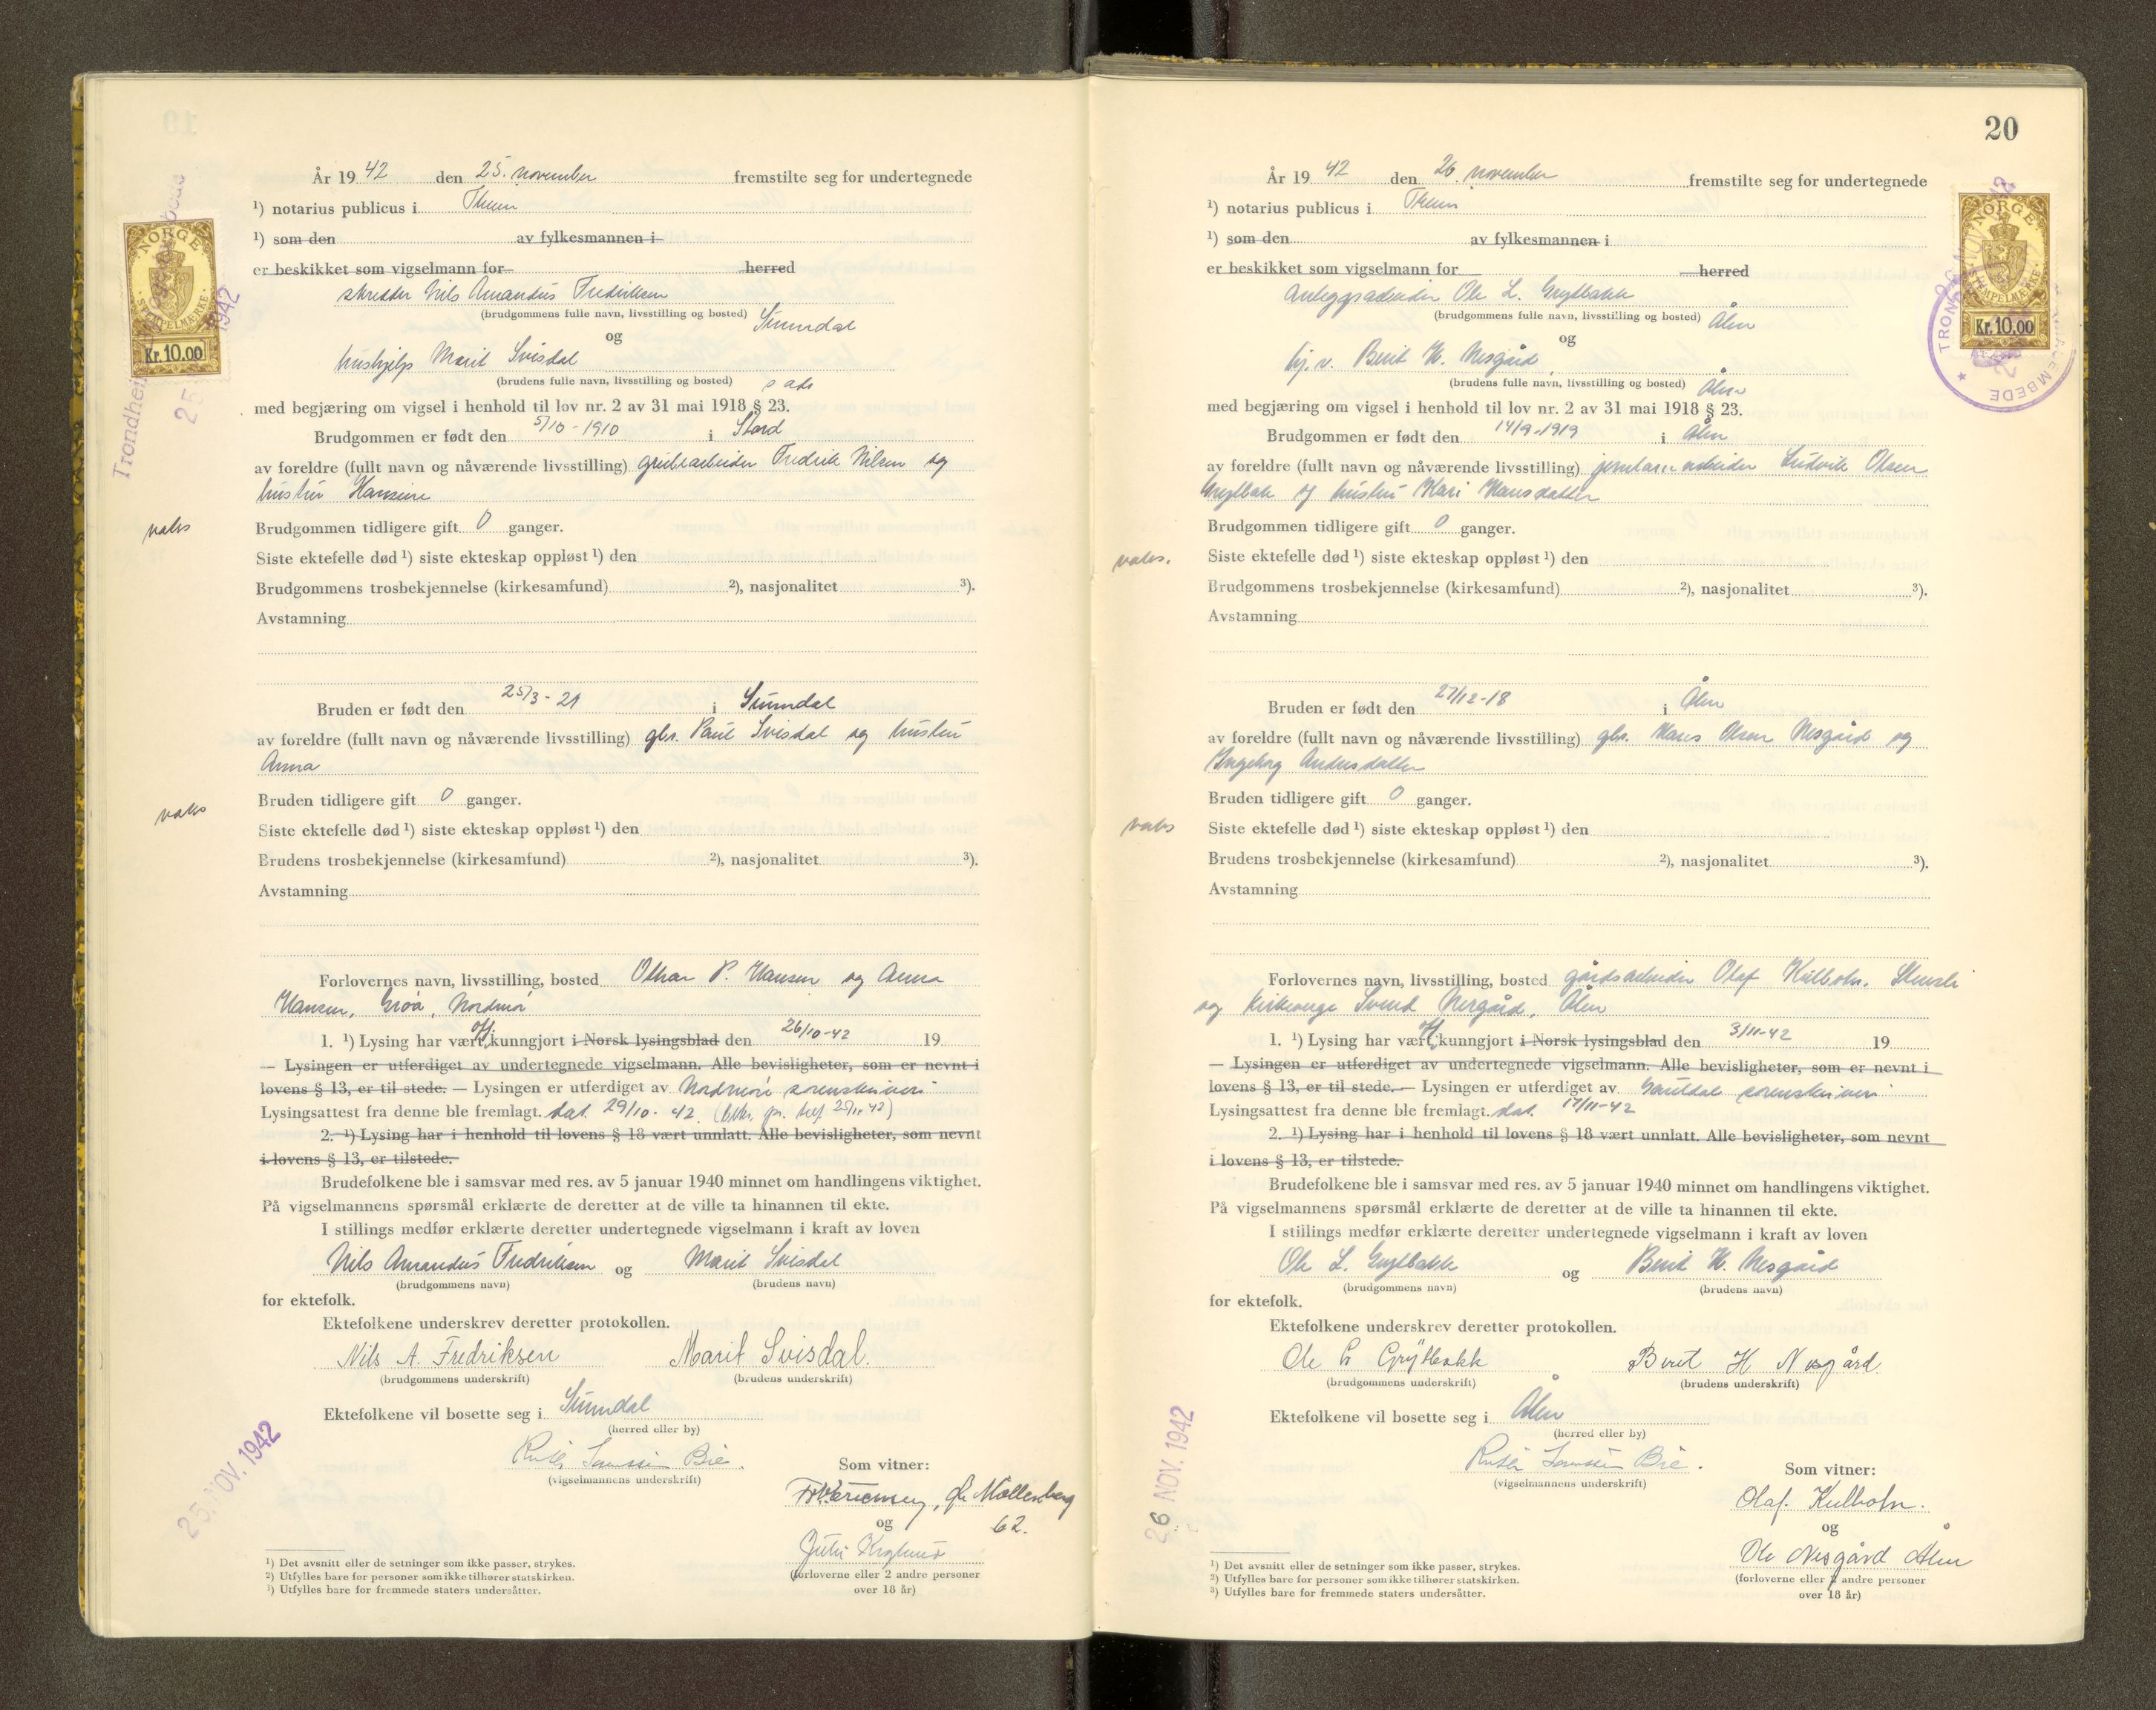 År 19 42 den 25. november fremstilte seg for undertegnede
¹) notarius publicus i Thum
¹) som den av fylkesmannen i
er beskikket som vigselmann for herred
skredder Nils Amandus Fredriksen
(brudgommens fulle navn, livsstilling og bosted) Sunndal
og
hushjelp Marit Svisdal
(brudens fulle navn, livsstilling og bosted) sads
med begjæring om vigsel i henhold til lov nr. 2 av 31 mai 1918 § 23.
Brudgommen er født den 5/10-1910 i Stord
av foreldre (fullt navn og nåværende livsstilling) grubearbeider Fredrik Nilsen og
hustru Hansine
vaks
Brudgommen tidligere gift 0 ganger.
Siste ektefelle død ¹) siste ekteskap oppløst ¹) den
Brudgommens trosbekjennelse (kirkesamfund) ²), nasjonalitet ³).
Avstamning
Bruden er født den 25/3-21 i Sunndal
av foreldre (fullt navn og nåværende livsstilling) gbr. Paul Svisdal og hustru
Anna
vaks
Bruden tidligere gift 0 ganger.
Siste ektefelle død ¹) siste ekteskap oppløst ¹) den
Brudens trosbekjennelse (kirkesamfund) ²), nasjonalitet ³).
Avstamning
Forlovernes navn, livsstilling, bosted Othar P. Hansen og Anna
Hansen, Grøa, Nordmør
1. ¹) Lysing har vært off. kunngjort i Norsk lysingsblad den 26/10-42 19
— Lysingen er utferdiget av undertegnede vigselmann. Alle bevisligheter, som er nevnt i
lovens § 13, er til stede. — Lysingen er utferdiget av Nordmøre sorenskriveri
Lysingsattest fra denne ble fremlagt. dat. 29/10-42
2. ¹) Lysing har i henhold til lovens § 18 vært unnlatt. Alle bevisligheter, som nevnt
i lovens § 13, er tilstede.
Brudefolkene ble i samsvar med res. av 5 januar 1940 minnet om handlingens viktighet.
På vigselmannens spørsmål erklærte de deretter at de ville ta hinannen til ekte.
I stillings medfør erklærte deretter undertegnede vigselmann i kraft av loven
Nils Amandus Fredriksen og Marit Svisdal
(brudgommens navn) (brudens navn)
for ektefolk.
Ektefolkene underskrev deretter protokollen.
Nils A. Fredriksen Marit Svisdal.
(brudgommens underskrift) (brudens underskrift)
Ektefolkene vil bosette seg i Sunndal
(herred eller by)
(vigselmannens underskrift)
Som vitner:
Møllenberg
og 62.
(forloverne eller 2 andre personer
over 18 år)
25. NOV. 1942
¹) Det avsnitt eller de setninger som ikke passer, strykes.
²) Utfylles bare for personer som ikke tilhører statskirken.
³) Utfylles bare for fremmede staters undersåtter.
NORGE
STEMPELMÆRKE
Kr. 10.00
20
År 19 42 den 26. november fremstilte seg for undertegnede
¹) notarius publicus i Thum
¹) som den av fylkesmannen i
er beskikket som vigselmann for herred
anleggsarbeider Ole L. Grytbakk
(brudgommens fulle navn, livsstilling og bosted) Ålen
og
hj.v. Berit H. Nesgård
(brudens fulle navn, livsstilling og bosted) Ålen
med begjæring om vigsel i henhold til lov nr. 2 av 31 mai 1918 § 23.
Brudgommen er født den 14/9-1919 i Ålen
av foreldre (fullt navn og nåværende livsstilling) jernbanearbeider Ludvik Olsen
Grytbakk og hustru Kari Hansdatter
Brudgommen tidligere gift 0 ganger.
vaks.
Siste ektefelle død ¹) siste ekteskap oppløst ¹) den
Brudgommens trosbekjennelse (kirkesamfund) ²), nasjonalitet ³).
Avstamning
Bruden er født den 27/12-18 i Ålen
av foreldre (fullt navn og nåværende livsstilling) gbr. Hans Olsen Nesgård og
Ingeborg Andersdatter
Bruden tidligere gift 0 ganger.
vaks
Siste ektefelle død ¹) siste ekteskap oppløst ¹) den
Brudens trosbekjennelse (kirkesamfund) ²), nasjonalitet ³).
Avstamning
Forlovernes navn, livsstilling, bosted gårdsarbeider Olaf Kulbotn,
og kirkverge Svend Nergård, Ålen
1. ¹) Lysing har vært off. kunngjort i Norsk lysingsblad den 3/11-42 19
— Lysingen er utferdiget av undertegnede vigselmann. Alle bevisligheter, som er nevnt i
lovens § 13, er til stede. — Lysingen er utferdiget av Gauldal sorenskriveri
Lysingsattest fra denne ble fremlagt. dat. 17/11-42
2. ¹) Lysing har i henhold til lovens § 18 vært unnlatt. Alle bevisligheter, som nevnt
i lovens § 13, er tilstede.
Brudefolkene ble i samsvar med res. av 5 januar 1940 minnet om handlingens viktighet.
På vigselmannens spørsmål erklærte de deretter at de ville ta hinannen til ekte.
I stillings medfør erklærte deretter undertegnede vigselmann i kraft av loven
Ole L. Grytbakk og Berit H. Nesgård
(brudgommens navn) (brudens navn)
for ektefolk.
Ektefolkene underskrev deretter protokollen.
Ole L Grytbakk Berit H Nesgård
(brudgommens underskrift) (brudens underskrift)
Ektefolkene vil bosette seg i Ålen
(herred eller by)
(vigselmannens underskrift)
Som vitner:
Olaf Kulbotn.
og
Ole Nesgård Ålen
(forloverne eller 2 andre personer
over 18 år)
26 NOV. 1942
¹) Det avsnitt eller de setninger som ikke passer, strykes.
²) Utfylles bare for personer som ikke tilhører statskirken.
³) Utfylles bare for fremmede staters undersåtter.
NORGE
STEMPELMÆRKE
Kr. 10.00